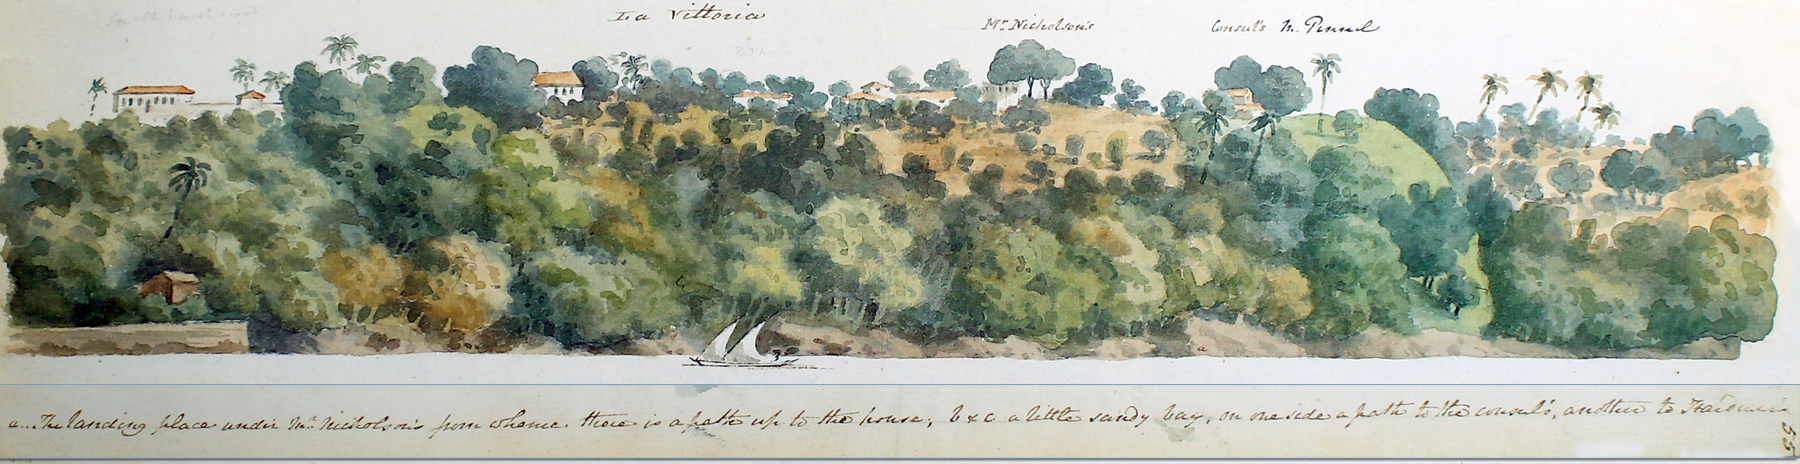 La Vittoria
Mr. Nicholson's
Consul's Mr. Pennel
a
a.. The landing place under Mr. Nicholson's from whence there is a path up to the house; b & c a little sandy bay, on one side a path to the consul's, another to
55